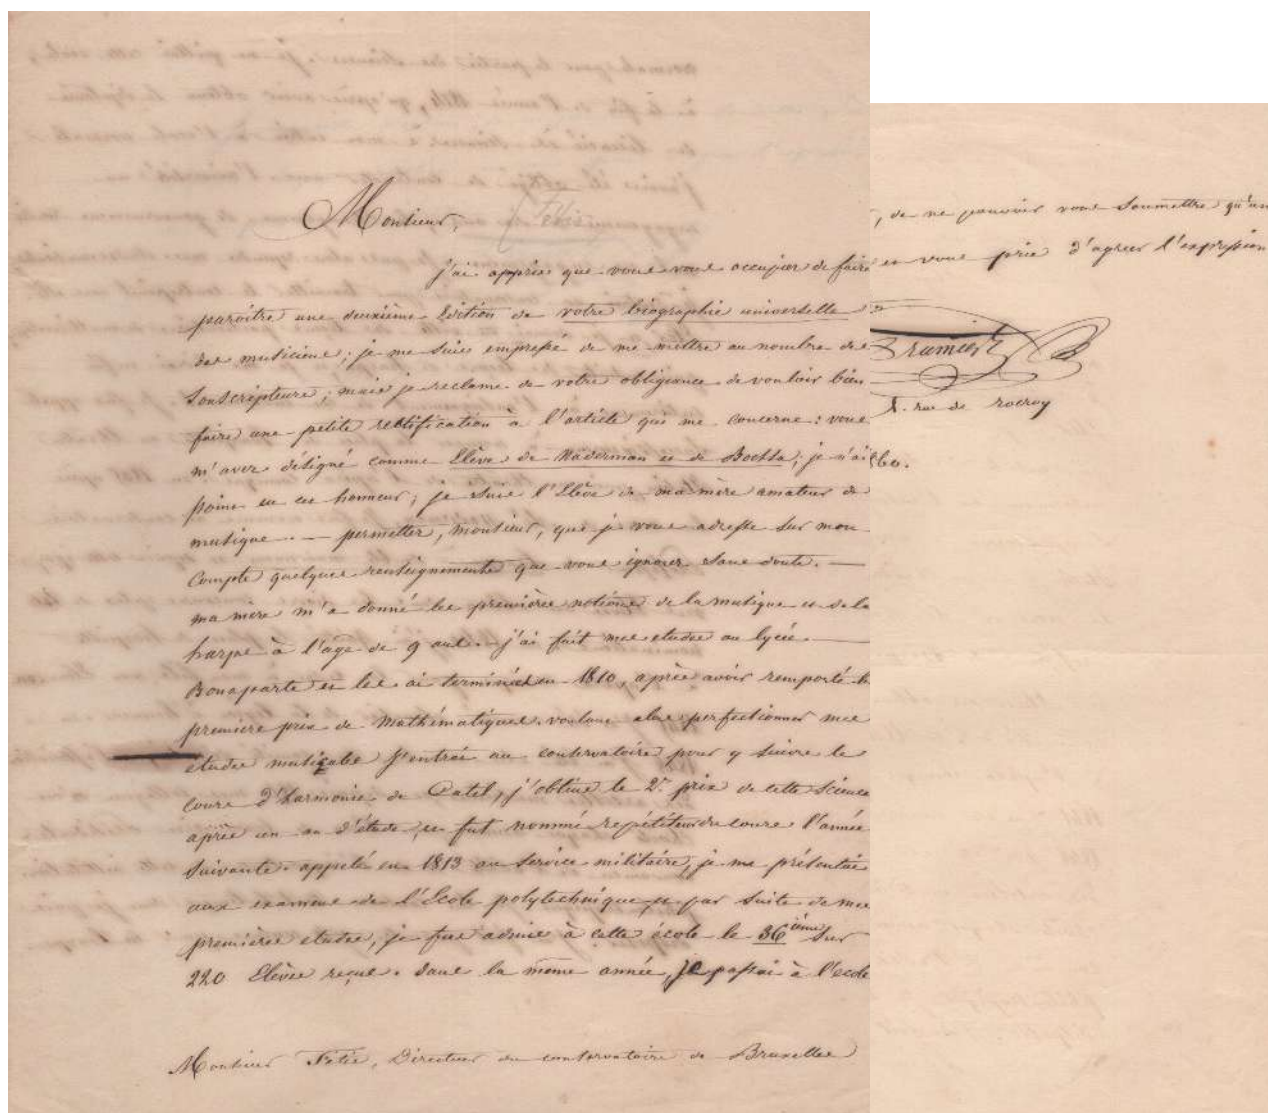 Monsieur,
Fétis
j'ai appris que vous vous occupiez de faire
paroître une deuxième Edition de votre biographie universelle
des musiciens; je me suis empressé de me mettre au nombre des
souscripteurs; mais je reclame de votre obligeance de vouloir bien
faire une petite rectification à l'article qui me concerne: vous
m'avez désigné comme Elève de Naderman et de Bochsa; je n'ai
point eu cet honneur; je suis l'Elève de ma mère amateur de
musique. — permettez, monsieur, que je vous adresse sur mon
compte quelques renseignements que vous ignorez sans doute. —
ma mère m'a donné les premières notions de la musique et de la
harpe à l'âge de 9 ans. — j'ai fait mes etudes au lycée —
Bonaparte et les ai terminées en 1810, après avoir remporté le
premiere prix de mathématiques. voulant alors perfectionner mes
etudes musicales j'entrai au conservatoire pour y suivre le
cours d'harmonie de Catel, j'obtins le 2e prix de cette science
après un an d'étude, et fut nommé repétiteur du cours l'année
suivante. appelé en 1813 au service militaire, je me présentai
aux examens de l'Ecole polytechnique, et par suite de mes
premières etudes, je fus admis à cette école le 36ième sur
220 Elèves reçus. dans la même année, je passai à l'ecole
Monsieur Fétis, Directeur du conservatoire de Bruxelles
, de ne pouvoir vous soumettre qu'un
et vous prie d'agreer l'expression
rue de rocroy